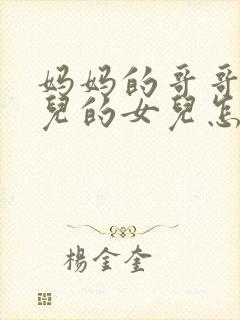 妈妈的哥哥
兒的女兒怎
楊金奎